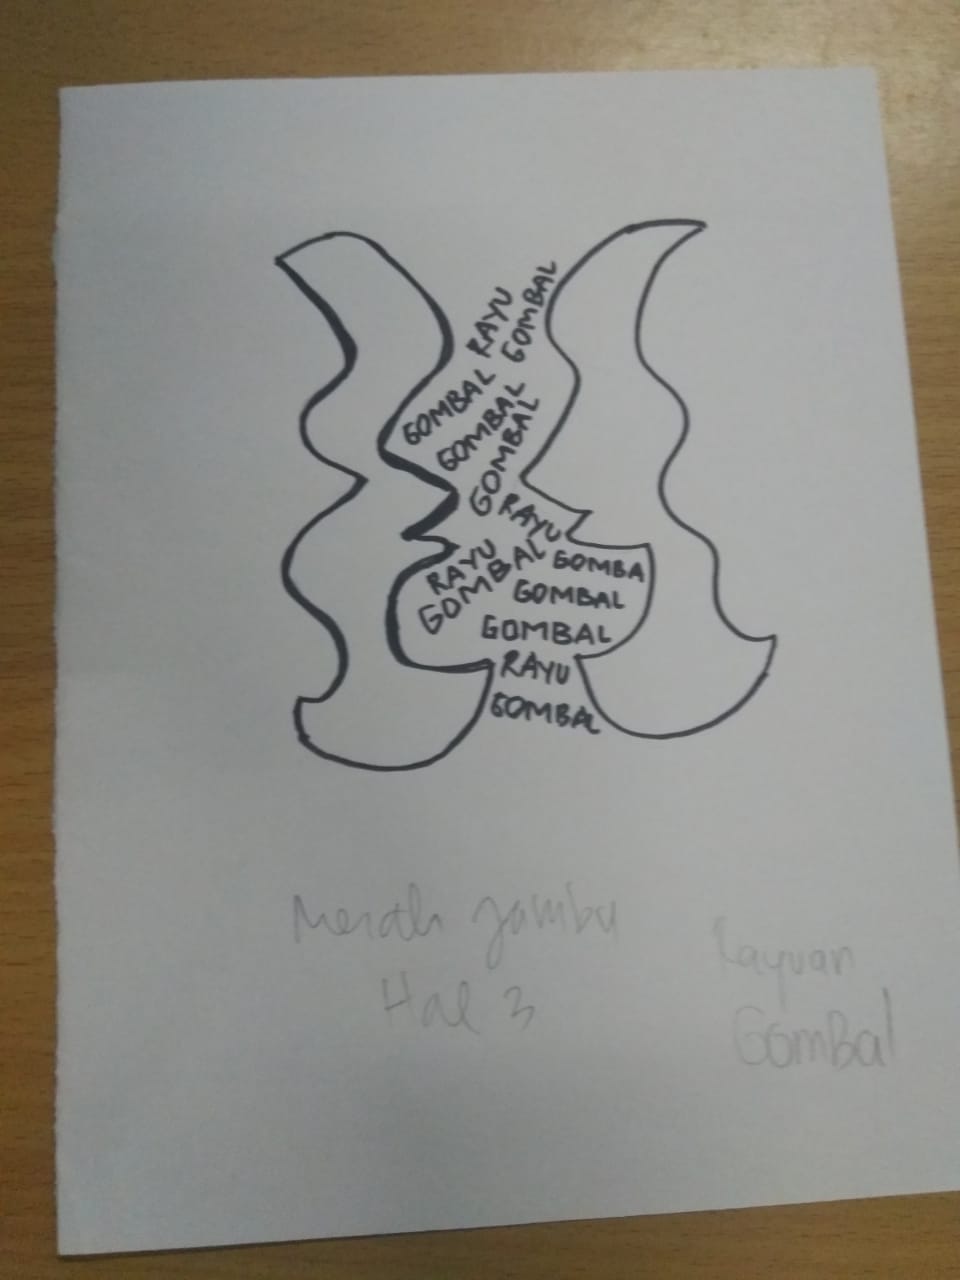 RAYU
GOMBAL
GOMBAL
GOMBAL
GOMBAL
RAYU
RAYU
GOMBAL
GOMBA
GOMBAL
GOMBAL
RAYU
GOMBAL
Merah Jambu
Hal 3
Rayuan
GomBal